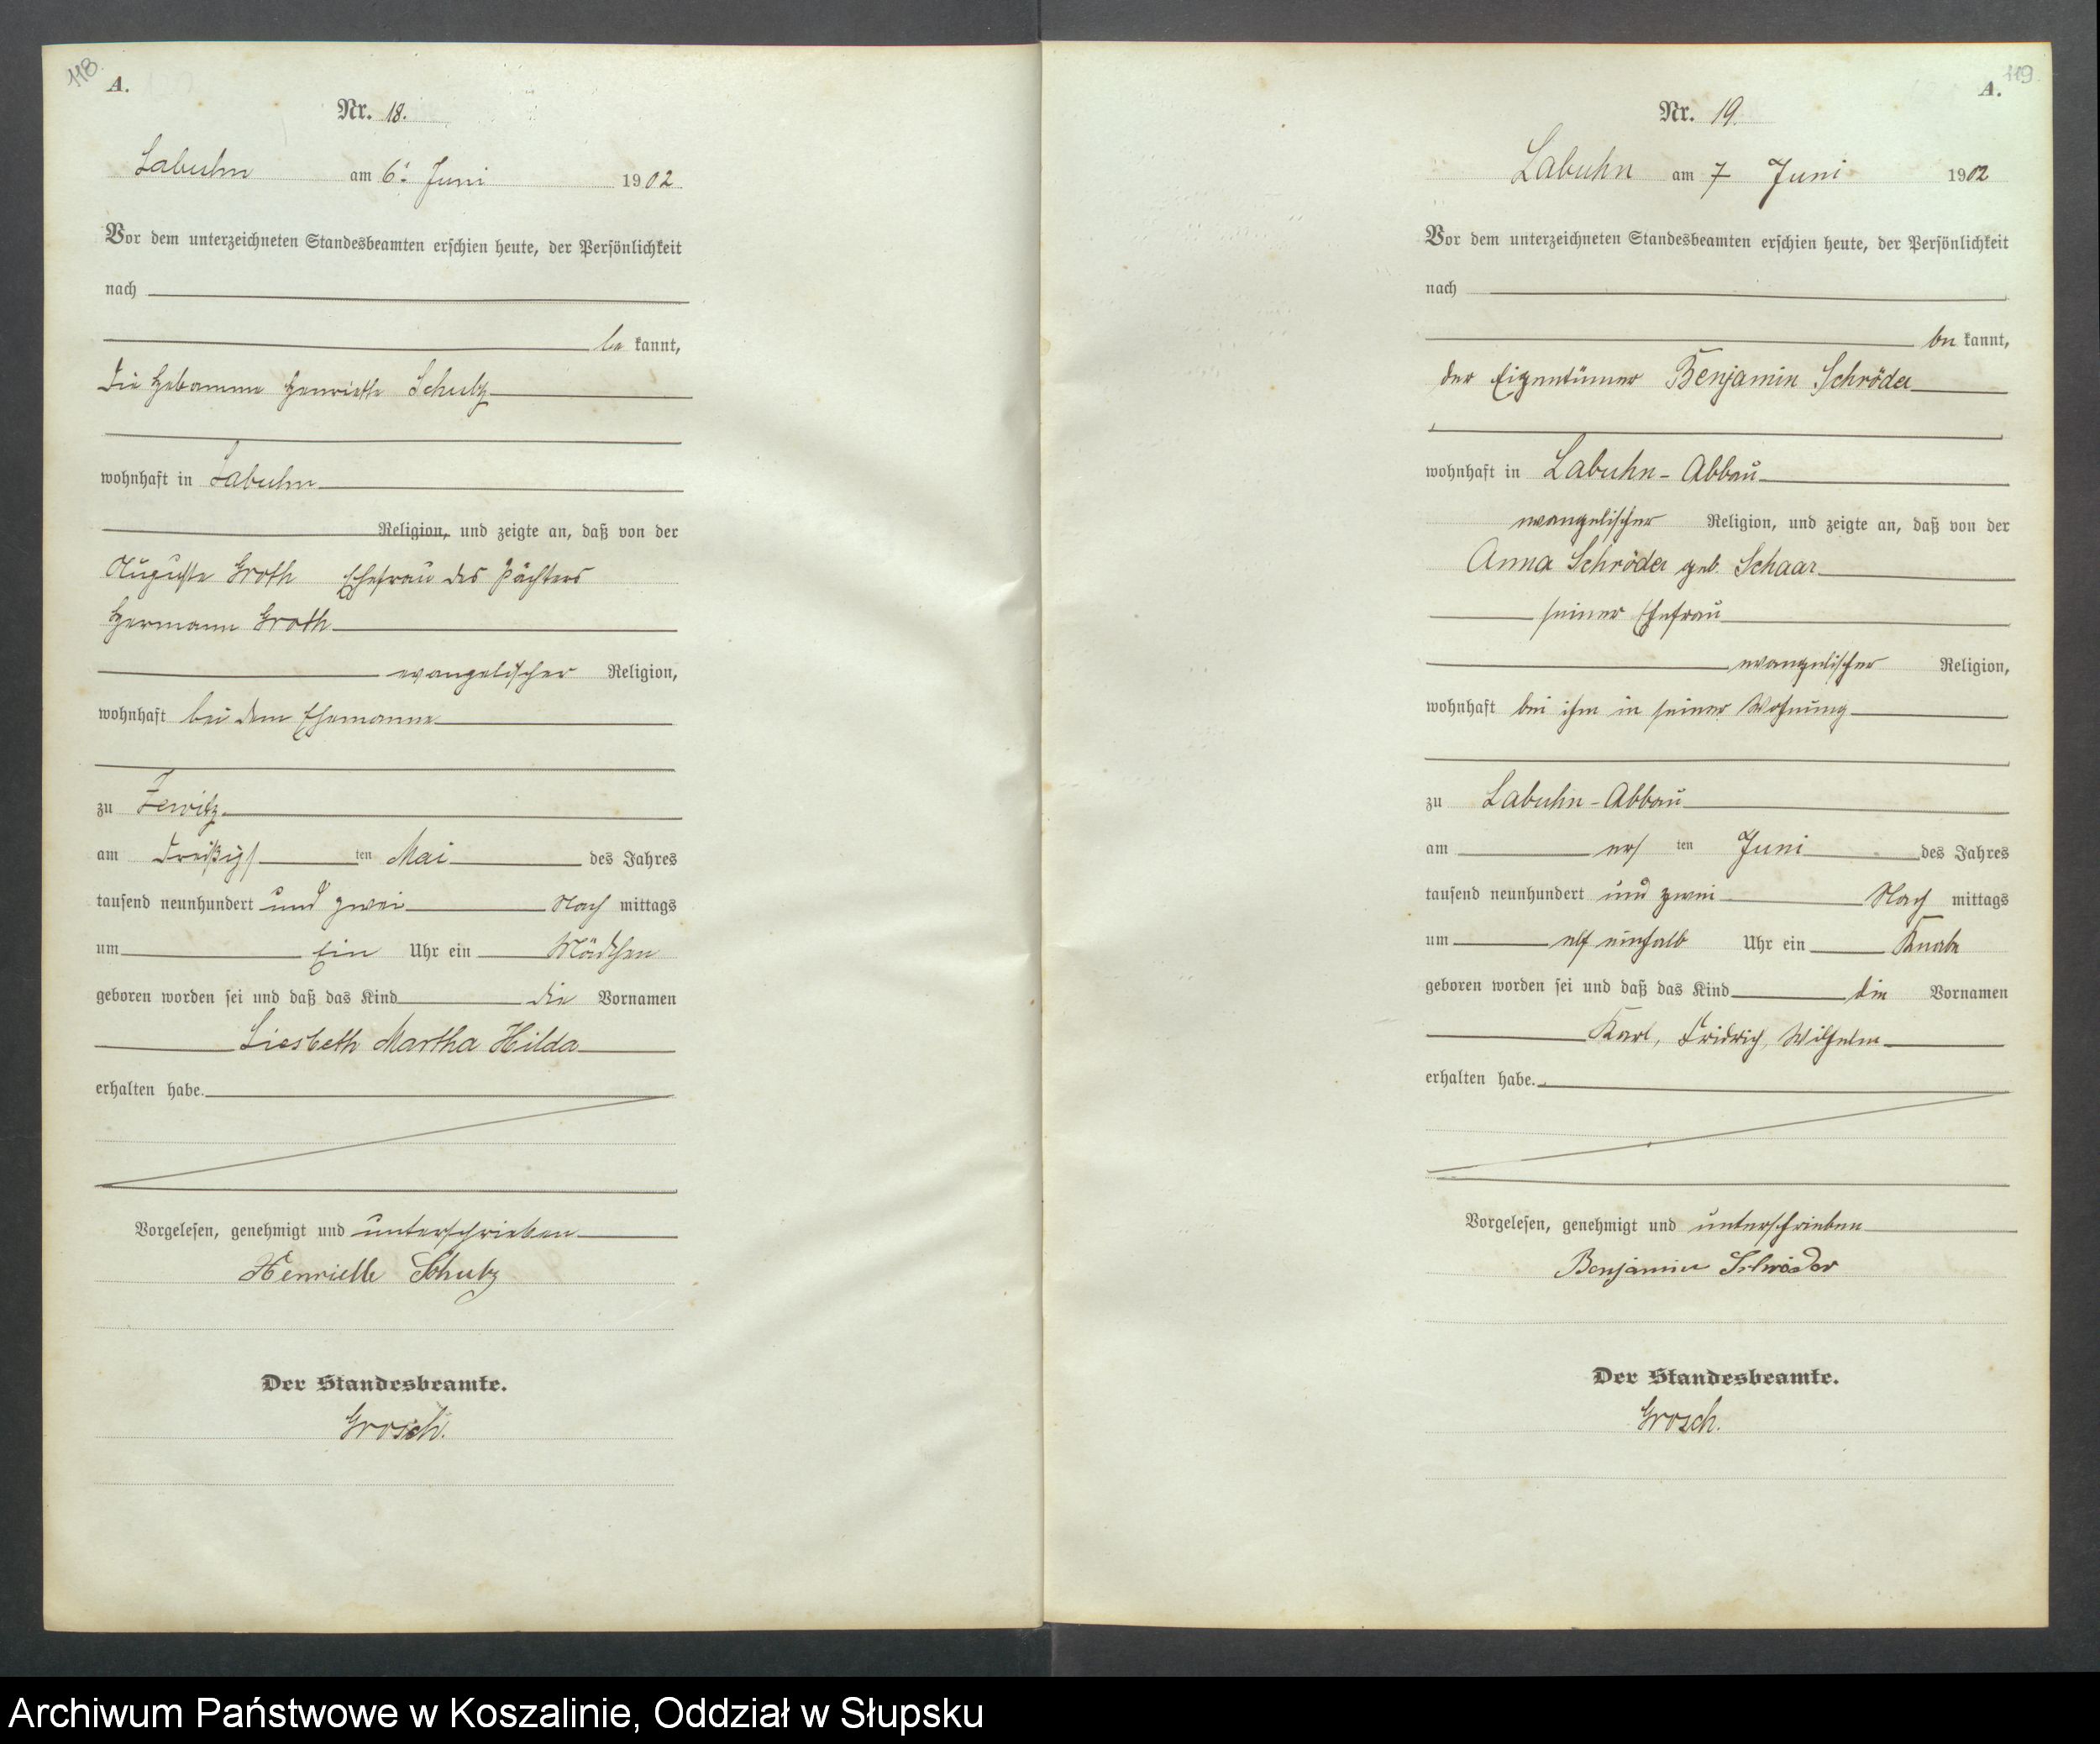 118
A.
Nr. 18.
Labuhn am 6. Juni 1902
Vor dem unterzeichneten Standesbeamten erschien heute, der Persönlichkeit
nach
be kannt,
die Hebamme Henriette Schulz
wohnhaft in Labuhn
Religion, und zeigte an, daß von der
Auguste Groth Ehefrau des Pächters
Hermann Groth
evangelischer Religion,
wohnhaft bei dem Ehemanne
zu Zewitz
am dreißigs ten Mai des Jahres
tausend neunhundert und zwei Nach mittags
um Ein Uhr ein Mädchen
geboren worden sei und daß das Kind die Vornamen
Liesbeth Martha Hilda
erhalten habe.
Vorgelesen, genehmigt und unterschrieben
Henriette Schulz
Der Standesbeamte.
Grosch.
119
A.
Nr. 19.
Labuhn am 7 Juni 1902
Vor dem unterzeichneten Standesbeamten erschien heute, der Persönlichkeit
nach
be kannt,
der Eigentümer Benjamin Schröder
wohnhaft in Labuhn-Abbau
evangelischer Religion, und zeigte an, daß von der
Anna Schröder geb. Schaar
seiner Ehefrau
evangelischer Religion,
wohnhaft bei ihm in seiner Wohnung
zu Labuhn-Abbau
am ers ten Juni des Jahres
tausend neunhundert und zwei Nach mittags
um elf einhalb Uhr ein Knabe
geboren worden sei und daß das Kind die Vornamen
Karl, Fridrich, Wilhelm
erhalten habe.
Vorgelesen, genehmigt und unterschrieben
Benjamin Schröder
Der Standesbeamte.
Grosch.
Archiwum Państwowe w Koszalinie, Oddział w Słupsku